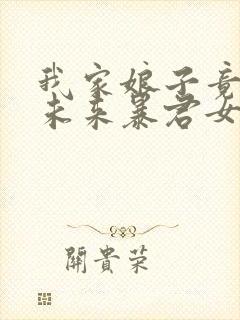 我家娘子竟
未来暴君女
關貴荣